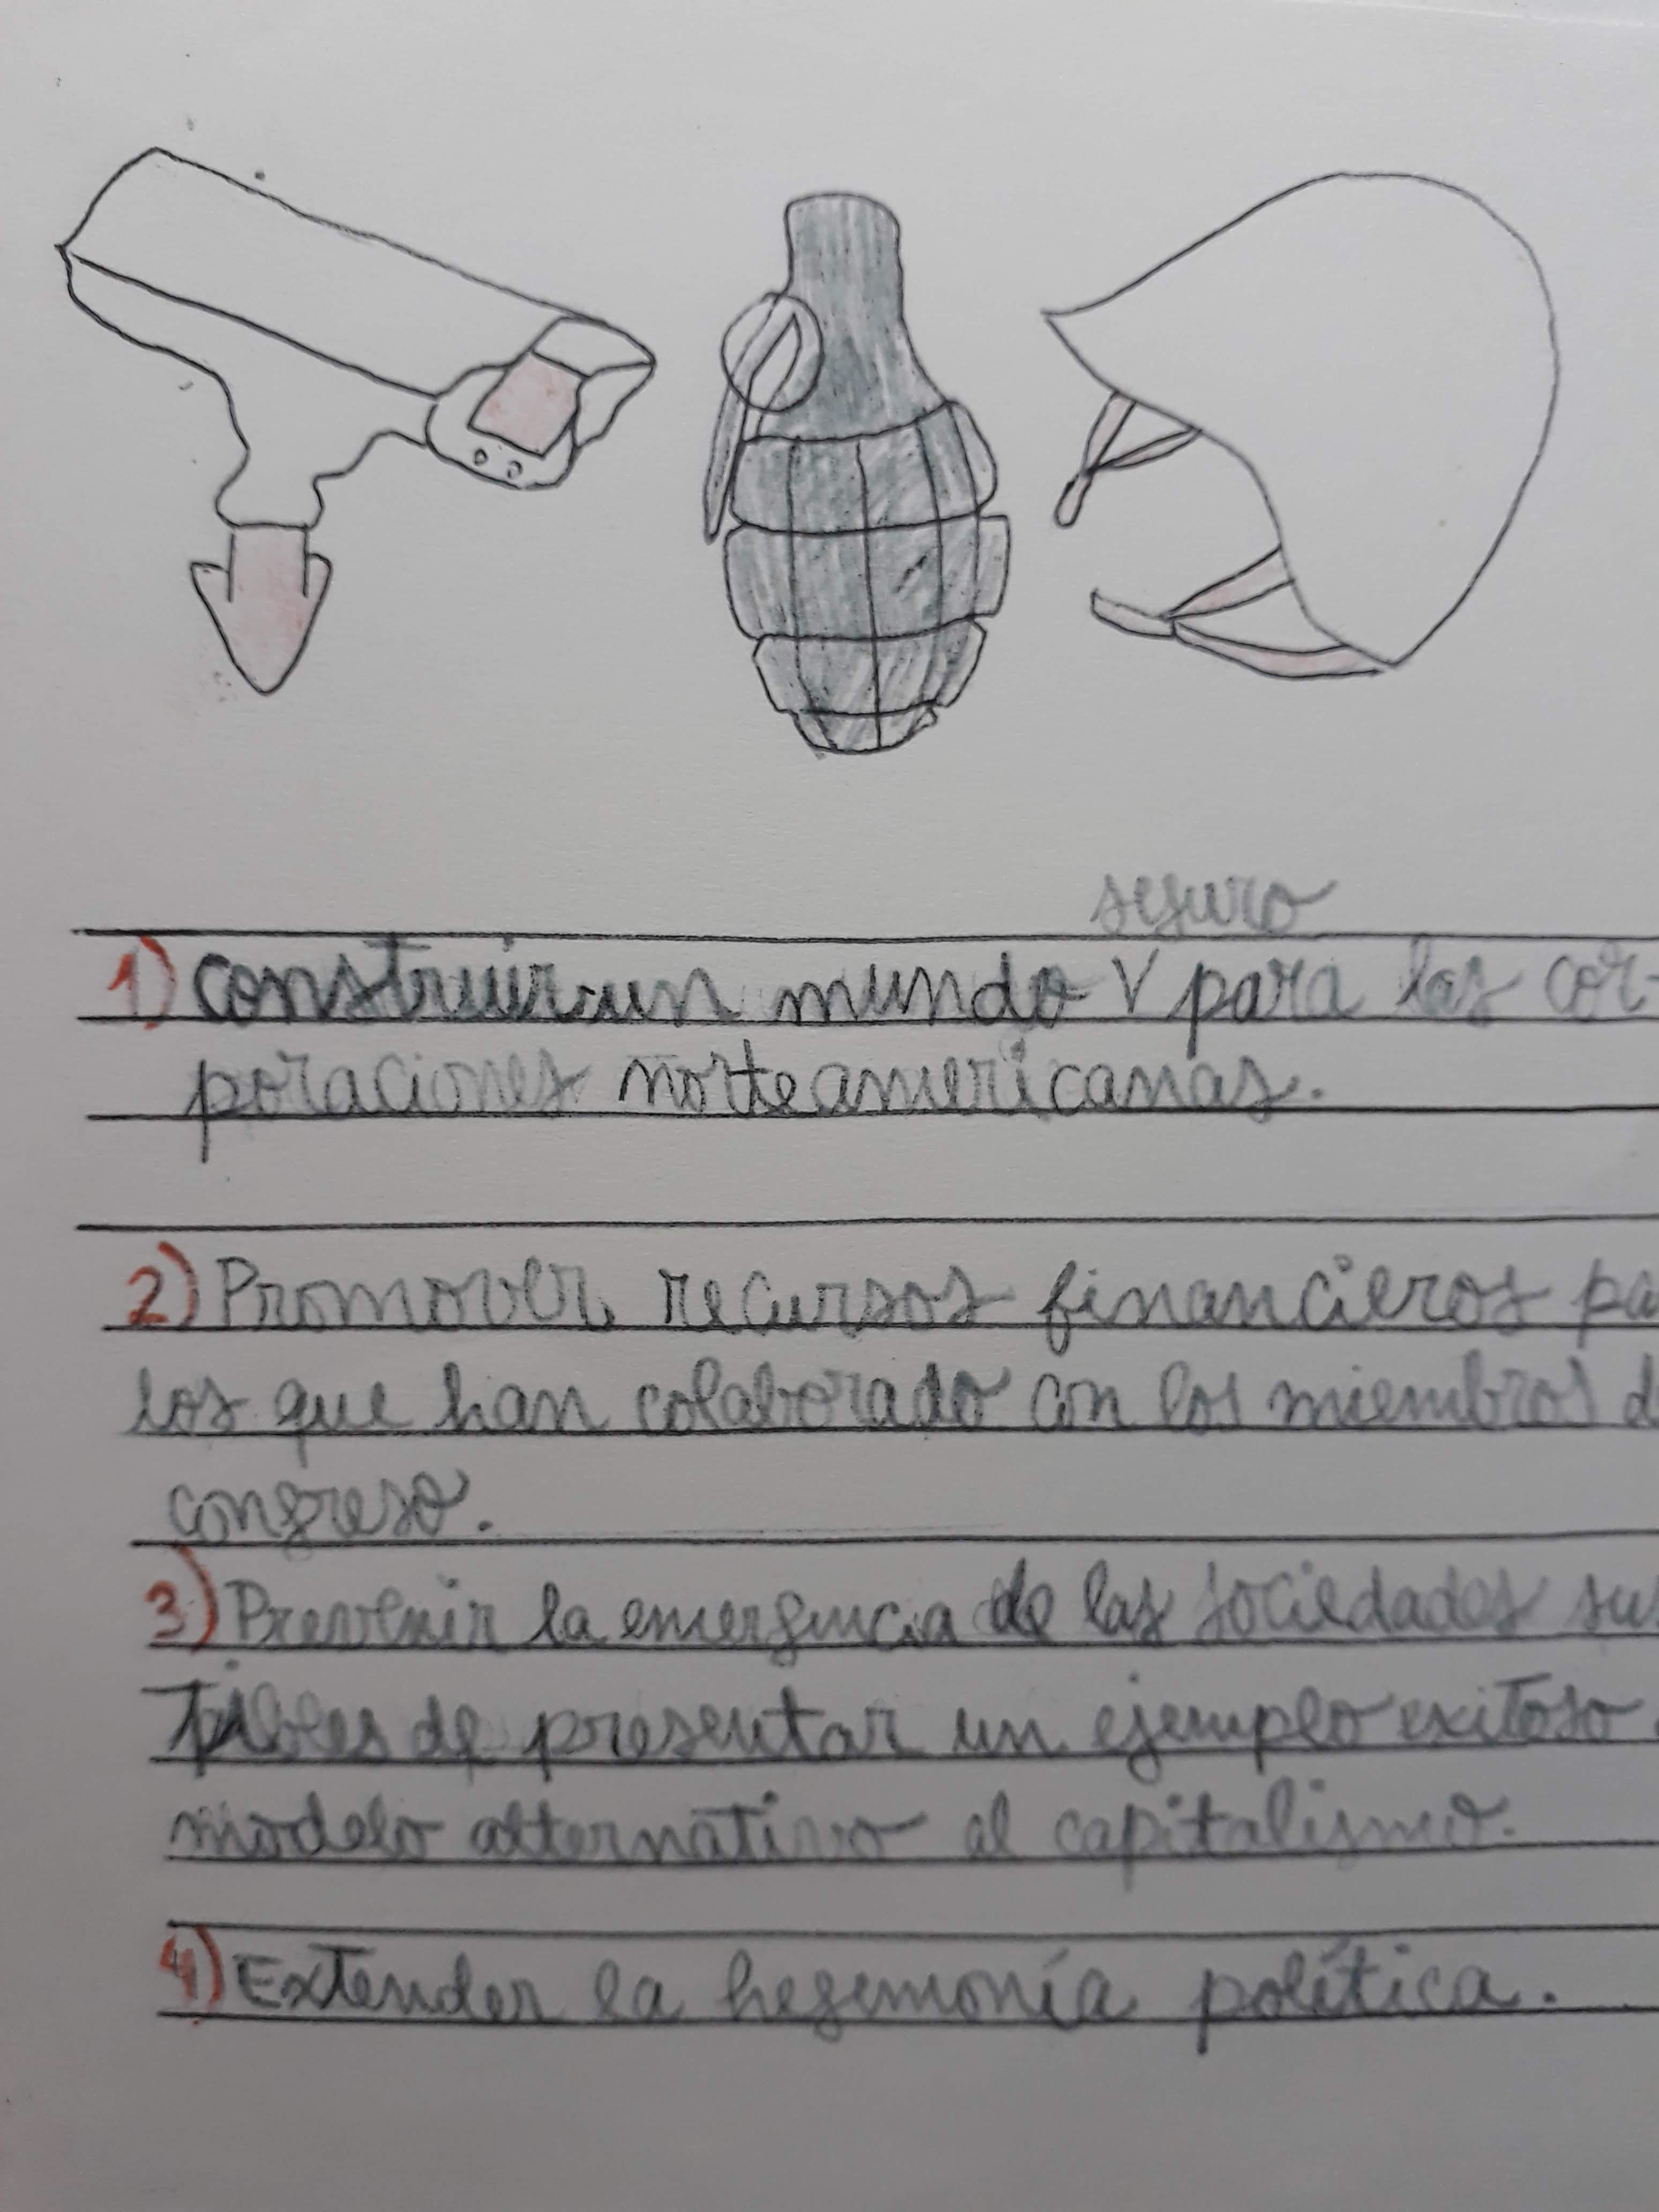 seguro
1) construir un mundo V para las cor-
poraciones norteamericanas.
2) Promover recursos financieros pa
los que han colaborado con los miembros d
congreso.
3) Prevenir la emergencia de las sociedades sus
tibles de presentar un ejemplo exitoso
modelo alternativo al capitalismo.
4) Extender la hegemonía política.